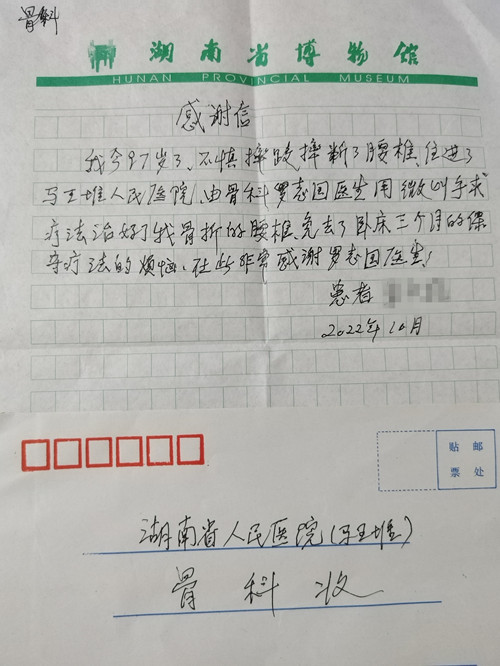 骨科
湖南省博物馆
HUNAN PROVINCIAL MUSEUM
感谢信
我今97岁了、不慎摔跤摔断了腰椎、住进了
马王堆人民医院、由骨科罗志国医生用微创手术
疗法治好了我骨折的腰椎、免去了卧床三个月的保
守疗法的烦恼、在此非常感谢罗志国医生！
患者
2022年10月
贴邮
票处
湖南省人民医院(马王堆)
骨科收